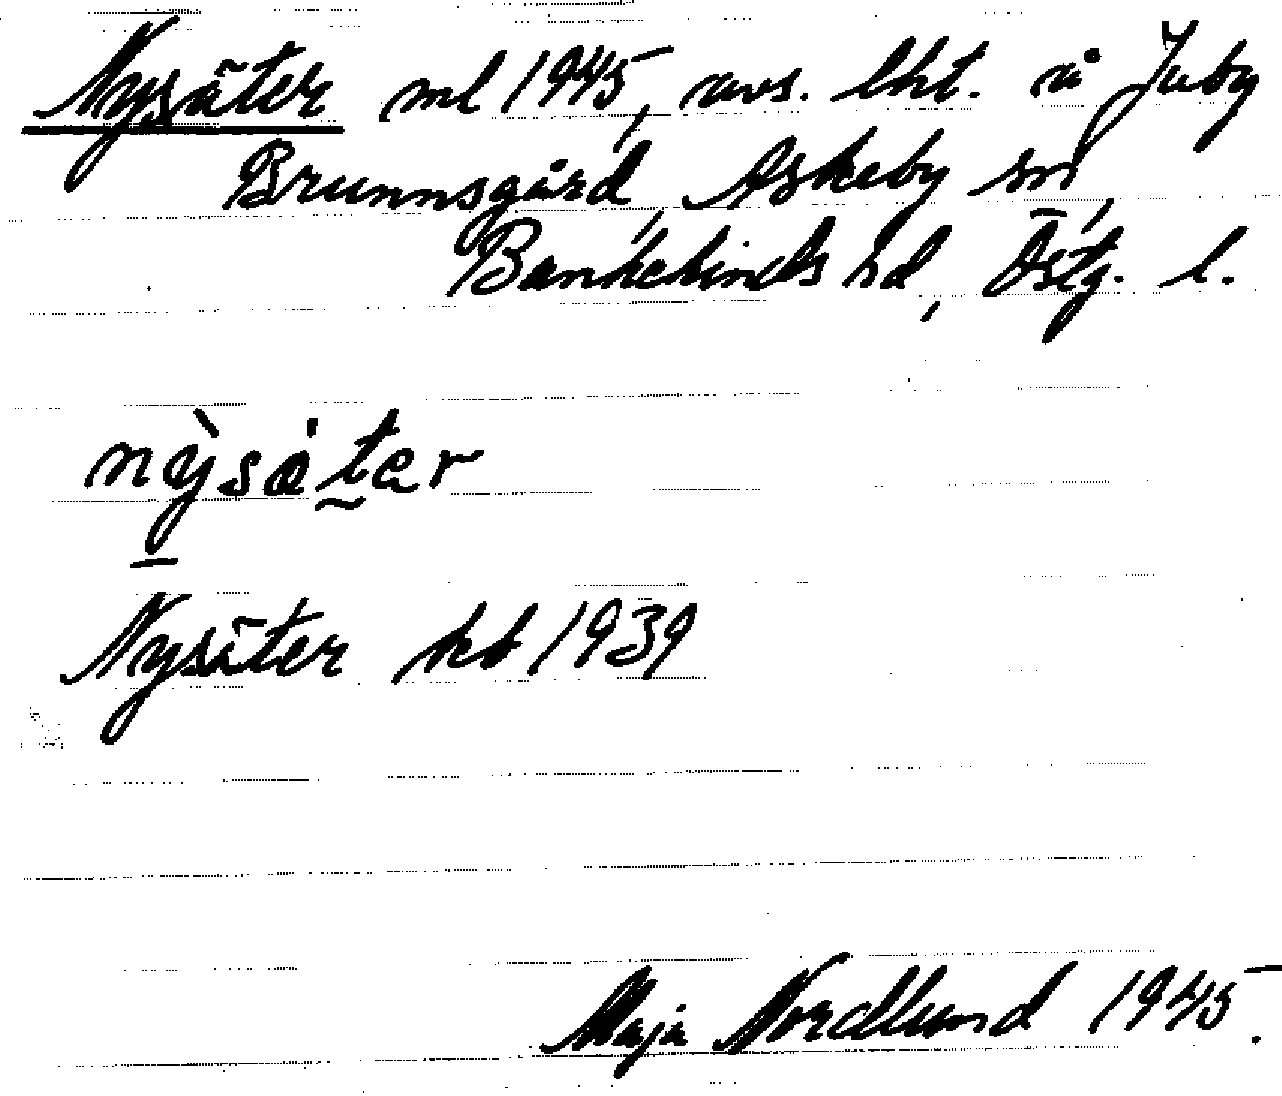 Nysäter ml 1945, avs. lht. å Juby
Brunnsgård, Askeby sn,
Bankekinds hd, Östg. l.
nỳsȧter
Nysäter kb 1939
Maja Nordlund 1945.